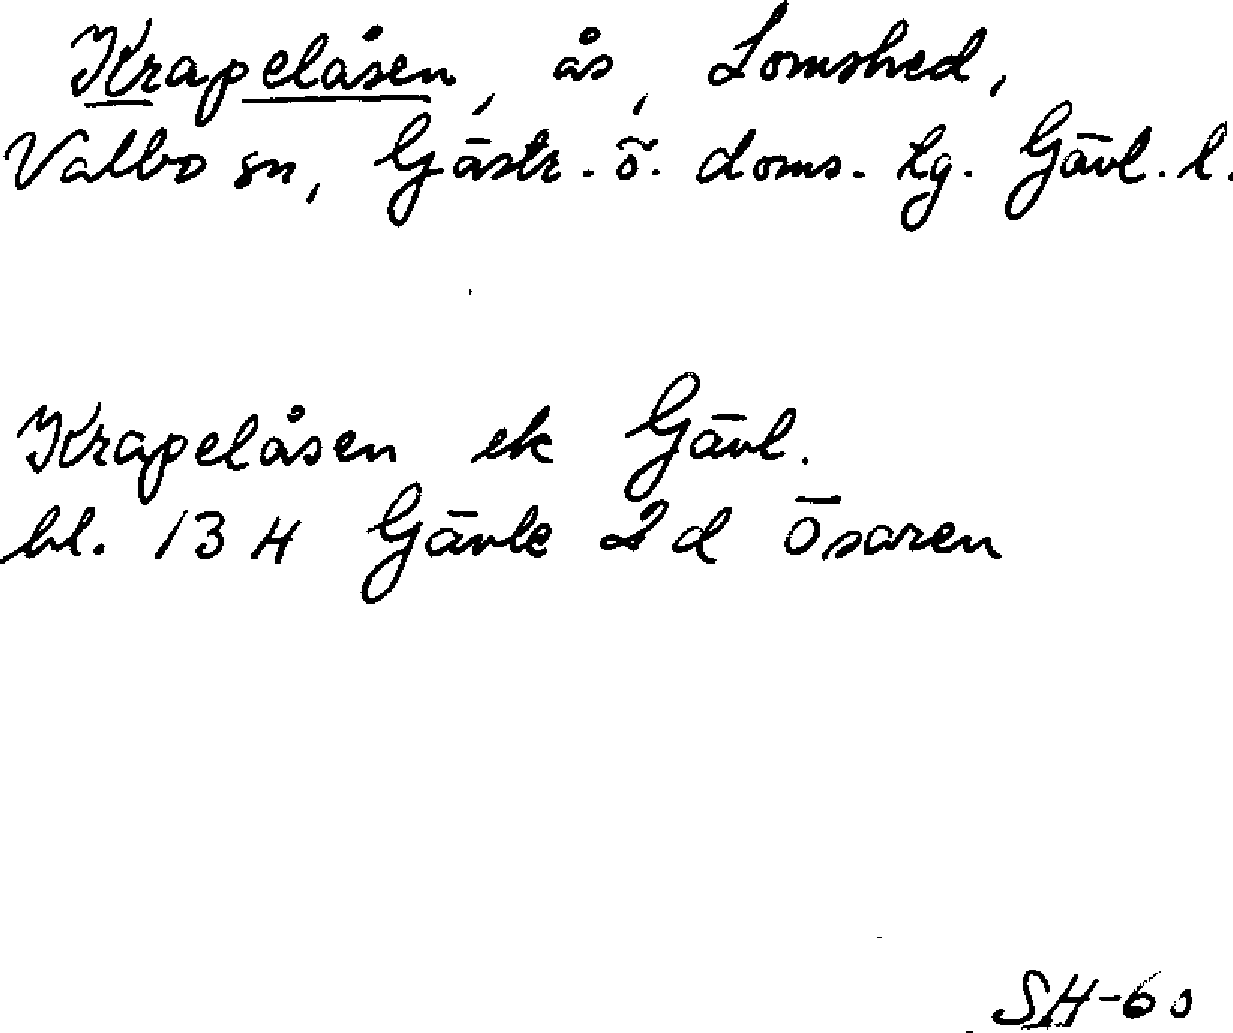 Krapelåsen, ås, Lomshed,
Valbo sn, Gästr. ö. doms. tg. Gävl. l.
Krapelåsen ek Gävl.
bl. 13 H Gävle 2 d Ösaren
SH-60